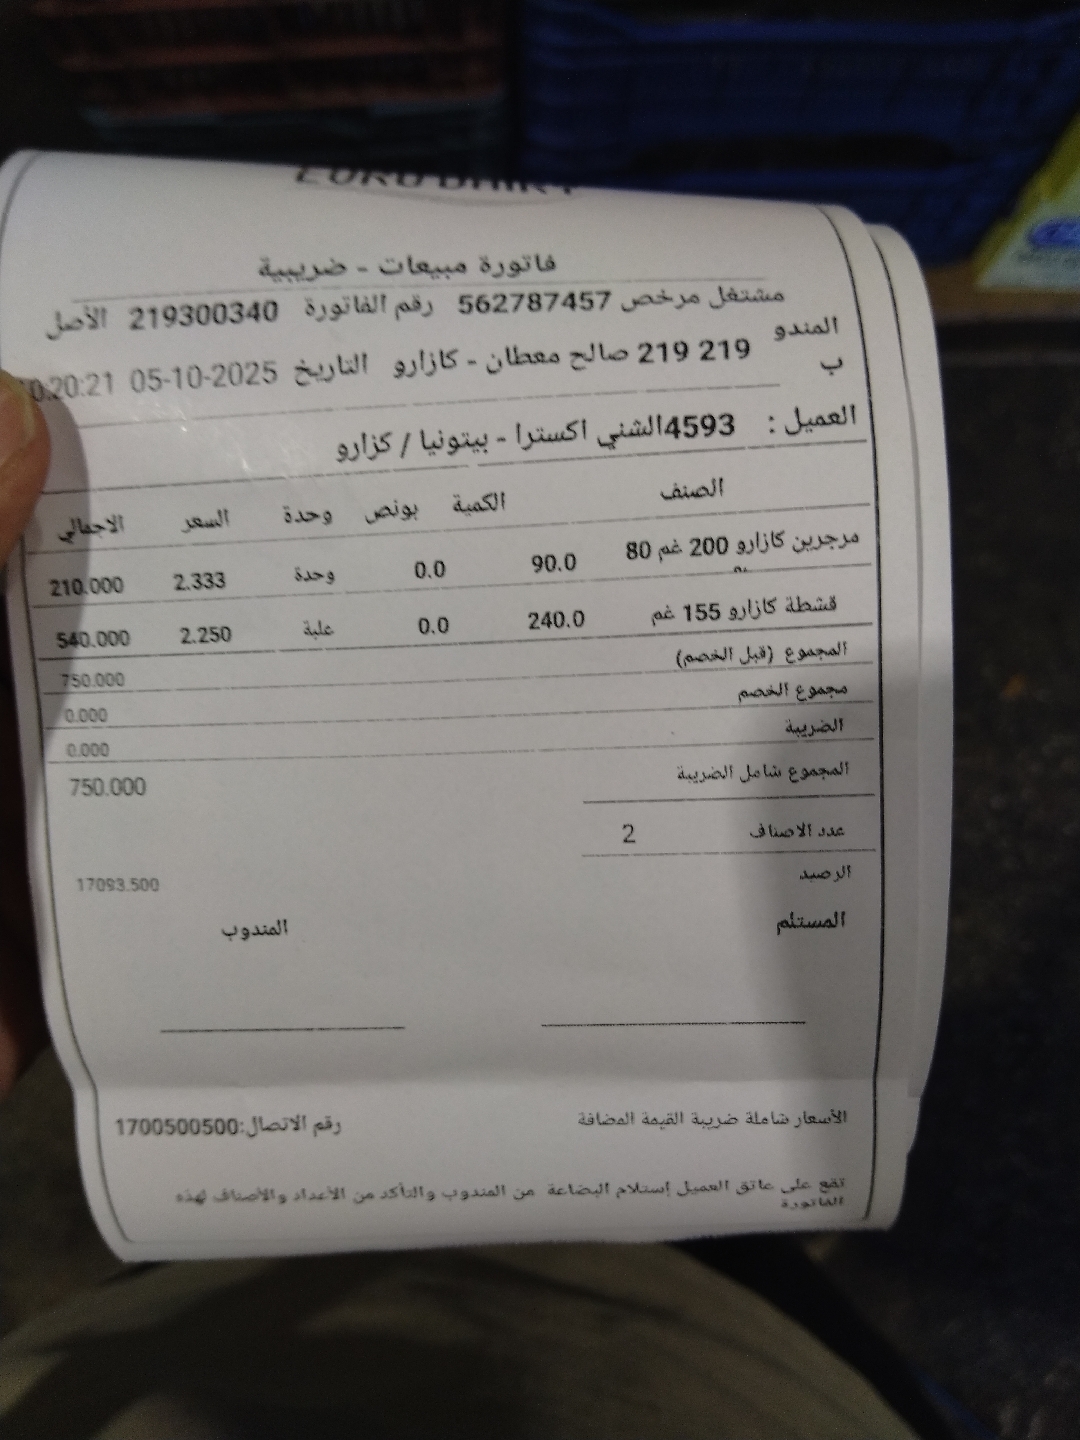 EURO DAIRY
فاتورة مبيعات - ضريبية
مشتغل مرخص 562787457 رقم الفاتورة 219300340 الأصل
المندوب 219 219 صالح معطان - كازارو التاريخ 05-10-2025 0:20:21
العميل : 4593الشني اكسترا - بيتونيا / كزارو
الصنف الكمية بونص وحدة السعر الاجمالي
مرجرين كازارو 200 غم 80 90.0 0.0 وحدة 2.333 210.000
قشطة كازارو 155 غم 240.0 0.0 علبة 2.250 540.000
المجموع (قبل الخصم) 750.000
مجموع الخصم 0.000
الضريبة 0.000
المجموع شامل الضريبة 750.000
عدد الاصناف 2
الرصيد 17093.500
المستلم المندوب
الأسعار شاملة ضريبة القيمة المضافة رقم الاتصال:1700500500
تقع على عاتق العميل إستلام البضاعة من المندوب والتأكد من الأعداد والأصناف لهذه
الفاتورة